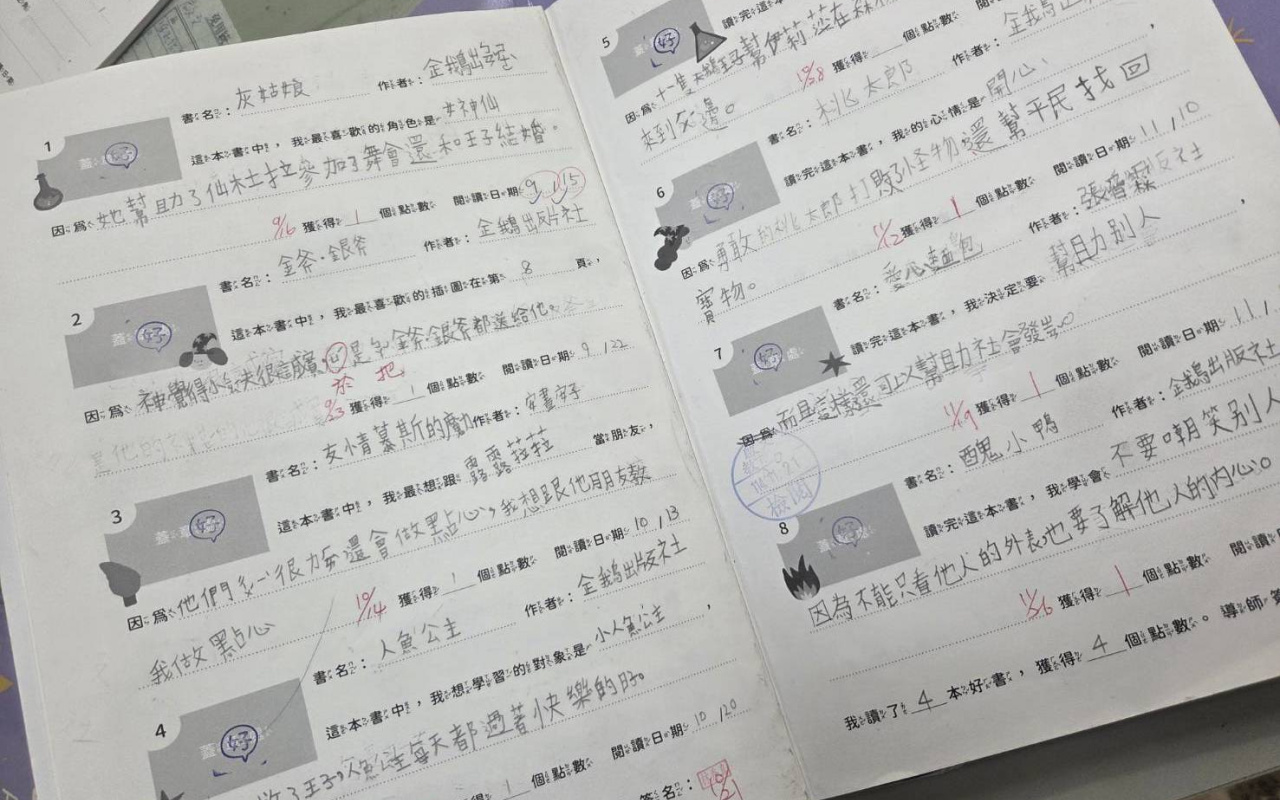 1
蓋 好
書名：灰姑娘 作者：金鵝出
這本書中，我最喜歡的角色是女神仙
因為她幫助了仙杜拉參加了舞會還和王子結婚。
9/16 獲得1個點數 閱讀日期9/15
2
蓋 好
書名：金斧·銀斧 作者：金鵝出版社
這本書中，我最喜歡的插圖在第8頁，
因為神覺得 很 心是 金斧銀斧都送給他
於 把
獲得1個點數 閱讀日期9/22
3
好
書名：友情慕斯的魔 作者：
這本書中，我最想跟露露菈菈當朋友，
因為他們 很 還會做點心，我想跟他 朋友教
我做點心
10/14 獲得1個點數 閱讀日期10/13
4
蓋 好
書名：人魚公主 作者：金鵝出版社
這本書中，我想學習的對象是小人魚公主，
了王子，人魚 每天都過著快樂的
1個點數 閱讀日期10/20
簽名：
5
蓋 好
讀完這本
因為十一隻天鵝王子幫伊莉莎在森林
來到 邊。
10/28 獲得 個點數
6
蓋 好
書名：桃太郎 作者：金鵝出
讀完這本書，我的心情是開心，
因為勇敢的桃太郎打敗了怪物還幫平民找回
寶物。
11/12 獲得1個點數 閱讀日期11/10
7
好處
書名：愛心麵包 作者：張晉霖
讀完這本書，我決定要幫助別人，
因為而且這樣還可以幫助社會發
11/19 獲得1個點數 閱讀日期11
檢閱
8
蓋 好處
書名：醜小鴨 作者：金鵝出版社
讀完這本書，我學會不要嘲笑別人
因為不能只看他人的外表也要了解他人的內心。
獲得1個點數 閱讀
我讀了4本好書，獲得4個點數。導師簽